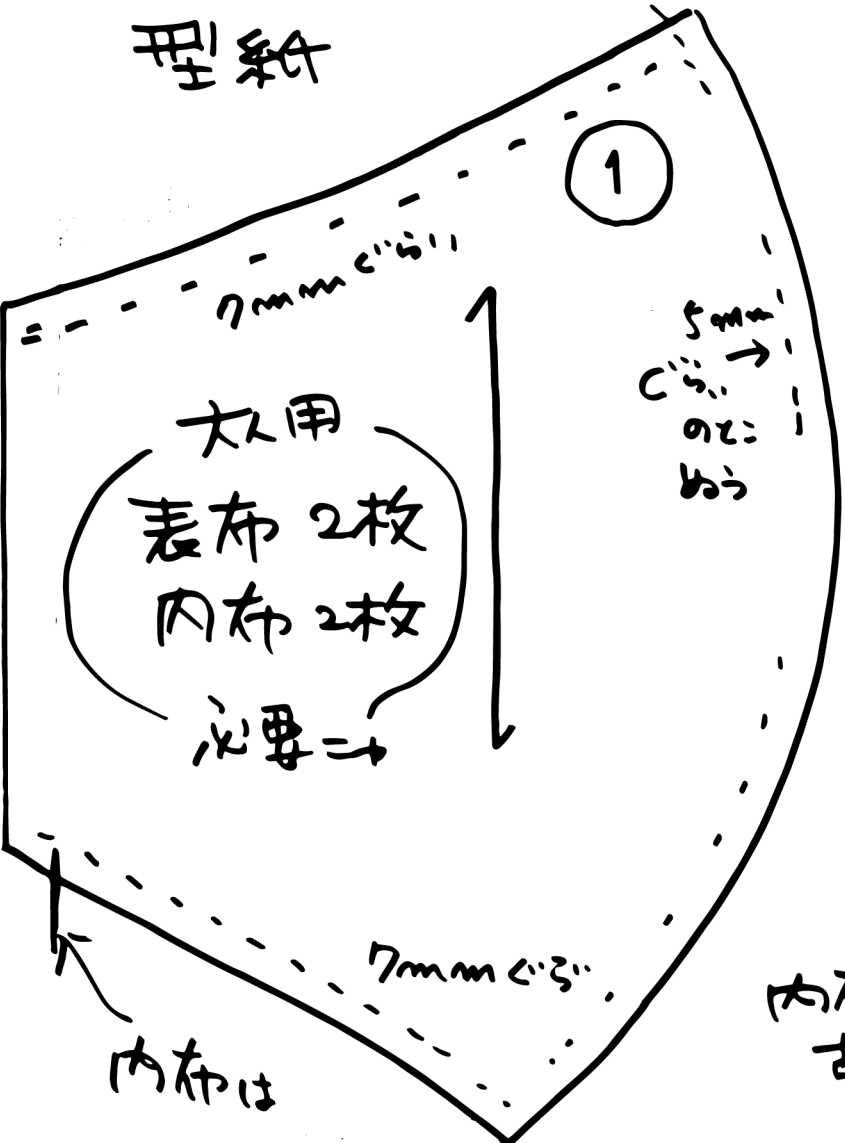 型紙
1
7mmぐらい
5mm
ぐらい
のとこ
ぬう
大人用
表布 2枚
内布 2枚
必要
7mmぐらい
内布は